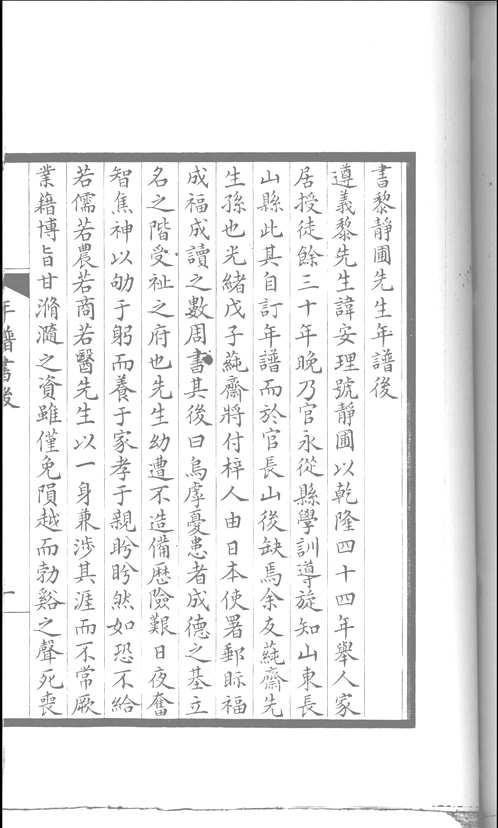 書黎靜圃先生年譜後
遵義黎先生諱安理號靜圃以乾隆四十四年舉人家
居授徒餘三十年晚乃官永從縣學訓導旋知山東長
山縣此其自訂年譜而於官長山後缺焉余友蒓齋先
生孫也光緒戊子蒓齋將付梓人由日本使署郵眎福
成福成讀之數周書其後曰烏虖憂患者成德之基立
名之階受祉之府也先生幼遭不造備歷險艱日夜奮
智焦神以劬于躬而養于家孝于親盻盻然如恐不給
若儒若農若商若醫先生以一身兼涉其涯而不常厥
業籍博旨甘滫瀡之資雖僅免隕越而勃谿之聲死喪
年譜書後
一